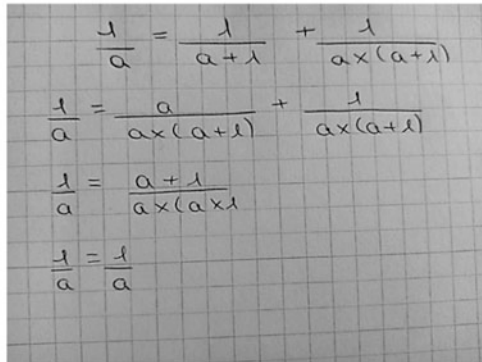 1/a = 1/(a+1) + 1/(a×(a+1))
1/a = a/(a×(a+1)) + 1/(a×(a+1))
1/a = (a+1)/(a×(a×1
1/a = 1/a